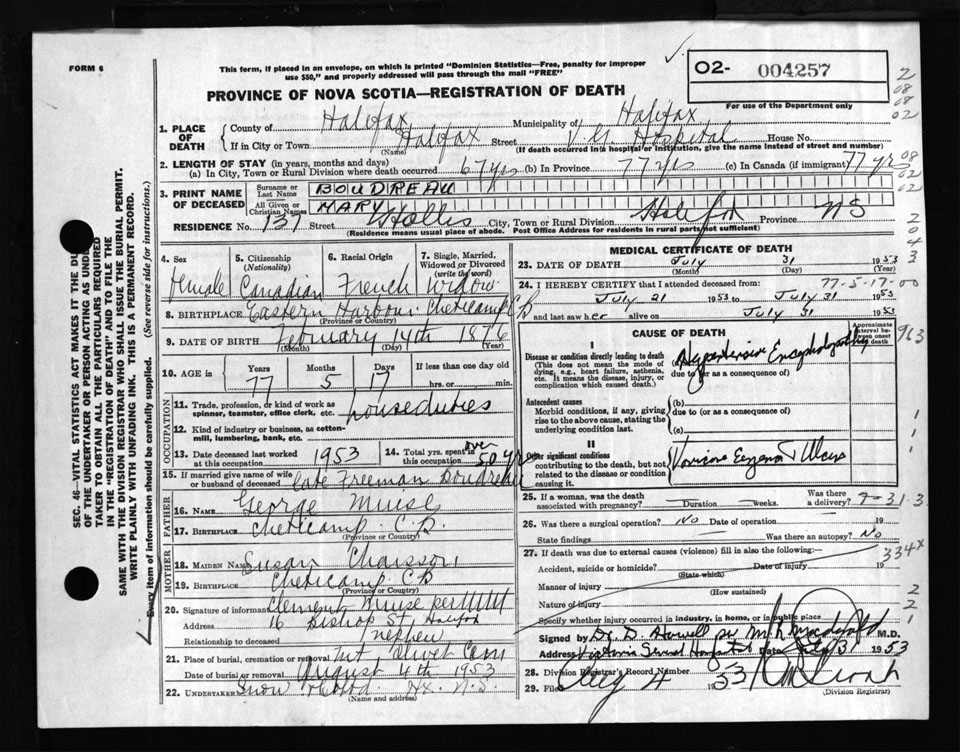 FORM 6
This form, if placed in an envelope, on which is printed "Dominion Statistics—Free, penalty for improper
use $50," and properly addressed will pass through the mail "FREE"
O2- 004257
For use of the Department only
PROVINCE OF NOVA SCOTIA—REGISTRATION OF DEATH
2
08
08
02
1. PLACE OF DEATH
County of Halifax Municipality of Halifax
If in City or Town Halifax Street V.G. Hospital House No.
(Name) (If death occurred in a hospital or institution, give the name instead of street and number)
2. LENGTH OF STAY (in years, months and days)
(a) In City, Town or Rural Division where death occurred 67 yrs (b) In Province 77 yrs (c) In Canada (if immigrant) 77 yr
08
02
3. PRINT NAME OF DECEASED
Surname or Last Name BOUDREAU
All Given or Christian Names MARY
RESIDENCE No. 137 Street Hollis City, Town or Rural Division Halifax Province NS
(Residence means usual place of abode. Post Office Address for residents in rural parts not sufficient)
2
0
4
3
4. Sex Female
5. Citizenship (Nationality) Canadian
6. Racial Origin French
7. Single, Married, Widowed or Divorced (write the word) Widow
8. BIRTHPLACE Eastern Harbour Cheticamp C B
(Province or Country)
9. DATE OF BIRTH February 14th 1876
(Month) (Day) (Year)
10. AGE in Years Months Days If less than one day old
77 5 17 hrs. or min.
OCCUPATION
11. Trade, profession, or kind of work as spinner, teamster, office clerk, etc. house duties
12. Kind of industry or business, as cotton-mill, lumbering, bank, etc.
13. Date deceased last worked at this occupation 1953
14. Total yrs. spent in this occupation over 50 yr
15. If married give name of wife or husband of deceased Late Freeman Boudreau
FATHER
16. NAME George Muise
17. BIRTHPLACE Cheticamp C.B.
(Province or Country)
MOTHER
18. MAIDEN NAME Susan Chaisson
19. BIRTHPLACE Cheticamp C B
(Province or Country)
20. Signature of informant Clement Muise per
Address 16 Bishop St Halifax
Relationship to deceased nephew
21. Place of burial, cremation or removal Mt Olivet Cem
Date of burial or removal August 4th 1953
22. UNDERTAKER Snow & Co Ltd. Hx. N.S.
(Name and Address)
MEDICAL CERTIFICATE OF DEATH
23. DATE OF DEATH July 31 1953
(Month) (Day) (Year)
24. I HEREBY CERTIFY that I attended deceased from: 77-5-17-00
July 21 1953 to July 31 1953
and last saw her alive on July 31 1953
CAUSE OF DEATH
Approximate interval between onset and death
963
I
Disease or condition directly leading to death
(This does not mean the mode of dying, e.g., heart failure, asthenia, etc. It means the disease, injury, or complication which caused death.)
Hypertensive Encephalopathy
due to (or as a consequence of)
Antecedent causes
Morbid conditions, if any, giving rise to the above cause, stating the underlying condition last.
(b)
due to (or as a consequence of)
(c)
1
1
II
Other significant conditions contributing to the death, but not related to the disease or condition causing it.
Varicose Eczema & Ulcers
1
25. If a woman, was the death associated with pregnancy? Duration weeks. Was there a delivery? 7-31-3
26. Was there a surgical operation? No Date of operation 19
State findings Was there an autopsy? No
27. If death was due to external causes (violence) fill in also the following:— 334x
Accident, suicide or homicide? Date of injury 19
(State which)
Manner of injury 2
(How sustained)
Nature of injury 2
Specify whether injury occurred in industry, in home, or in public place 1
Signed by Dr. D. Howell per M.R. Macdonald M.D.
Address Victoria General Hospital Date July 31 1953
28. Division Registrar's Record Number
29. Filed Aug 4 1953
(Division Registrar)
SEC. 46—VITAL STATISTICS ACT MAKES IT THE DU
OF THE UNDERTAKER OR PERSON ACTING AS UND
TAKER TO OBTAIN ALL THE PARTICULARS REQUIRED
IN THE "REGISTRATION OF DEATH" AND TO FILE THE
SAME WITH THE DIVISION REGISTRAR WHO SHALL ISSUE THE BURIAL PERMIT.
WRITE PLAINLY WITH UNFADING INK. THIS IS A PERMANENT RECORD.
Every item of information should be carefully supplied. (See reverse side for instructions.)